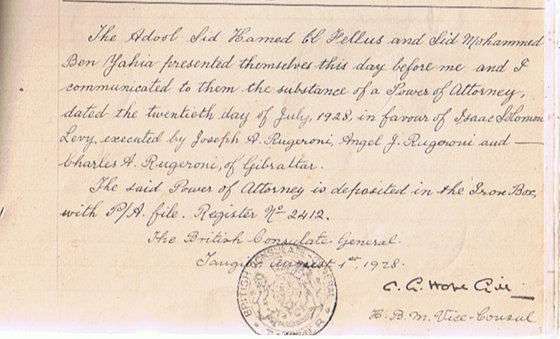 The Adool Sid Hamed El Fellus and Sid Mohammed
Ben Yahia presented themselves this day before me and I
communicated to them the substance of a Power of Attorney,
dated the twentieth day of July, 1928, in favour of Isaac Solomon
Levy, executed by Joseph A. Rugeroni, Angel J. Rugeroni and —
Charles A. Rugeroni, of Gibraltar.
The said Power of Attorney is deposited in the Iron Box,
with P/A. file. Register Nº 2412.
The British Consulate General.
Tangier August 1st, 1928.
BRITISH CONSULATE GENERAL TANGIER
H. B. M. Vice-Consul